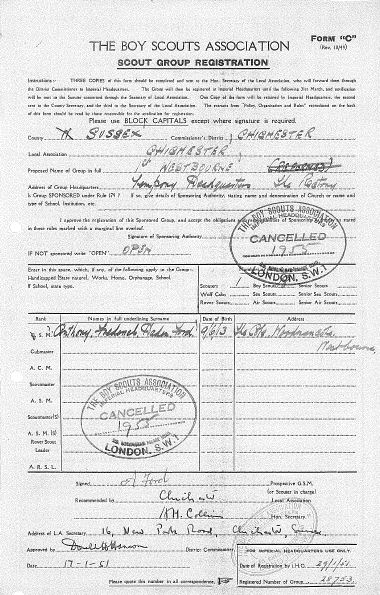 FORM "C"
(Rev. 10/49)
THE BOY SCOUTS ASSOCIATION
SCOUT GROUP REGISTRATION
Instructions:- THREE COPIES of this form should be completed and sent to the Hon. Secretary of the Local Association, who will forward them through
the District Commissioners to Imperial Headquarters. The Group will then be registered at Imperial Headquarters until the following 31st March, and notification
will be sent to the Scouter concerned through the Secretary of the Local Association. One Copy of the form will be returned by Imperial Headquarters, the second
sent to the County Secretary, and the third to the Secretary of the Local Association. The extracts from "Policy, Organisation and Rules" reproduced on the back
of this form should be read by those responsible for the application for registration.
Please use BLOCK CAPITALS except where signature is required.
County W SUSSEX Commissioner's District CHICHESTER
Local Association CHICHESTER
Proposed Name of Group in full WESTBOURNE
Address of Group Headquarters Temporary Headquarters The
Is Group SPONSORED under Rule 17? If so, give details of Sponsoring Authority, stating name and denomination of Church or name and
type of School, Institution, etc.
I approve the registration of this Sponsored Group, and accept the obligations of Sponsoring Authority as stated
in these rules marked with a marginal line overleaf.
Signature of Sponsoring Authority
IF NOT SPONSORED write "OPEN" OPEN
THE BOY SCOUTS ASSOCIATION
IMPERIAL HEADQUARTERS
CANCELLED
1955
LONDON, S.W.1
Enter in this space, which, if any, of the following apply to the Group:
Handicapped State nature), Works, Home, Orphanage, School.
If School, state type.
Scouters Boy Scouts Senior Sea Scouts
Wolf Cubs Sea Scouts Senior Air Scouts
Rover Scouts Air Scouts
Rank Names in full underlining Surname Date of Birth Address
G. S. M. Anthony, Frederick Ford 9/6/13 The Westbourne
Cubmaster
A. C. M.
Scoutmaster
A. S. M.
Scoutmaster(s)
A. S. M(s)
Rover Scout
Leader
A. R. S. L.
THE BOY SCOUTS ASSOCIATION
IMPERIAL HEADQUARTERS
CANCELLED
1955
25, BUCKINGHAM PALACE ROAD,
LONDON, S.W.1
Signed A Ford Prospective G.S.M.
(or Scouter in charge)
Recommended by Chichester Local Association
Hon. Secretary
Address of L.A. Secretary 16, New Park Road, Chichester, Sussex
Approved by District Commissioner
Date 17-1-51
FOR IMPERIAL HEADQUARTERS USE ONLY.
Date of Registration by I.H.Q. 29/1/51
Please quote this number in all correspondence. Registered Number of Group 28753